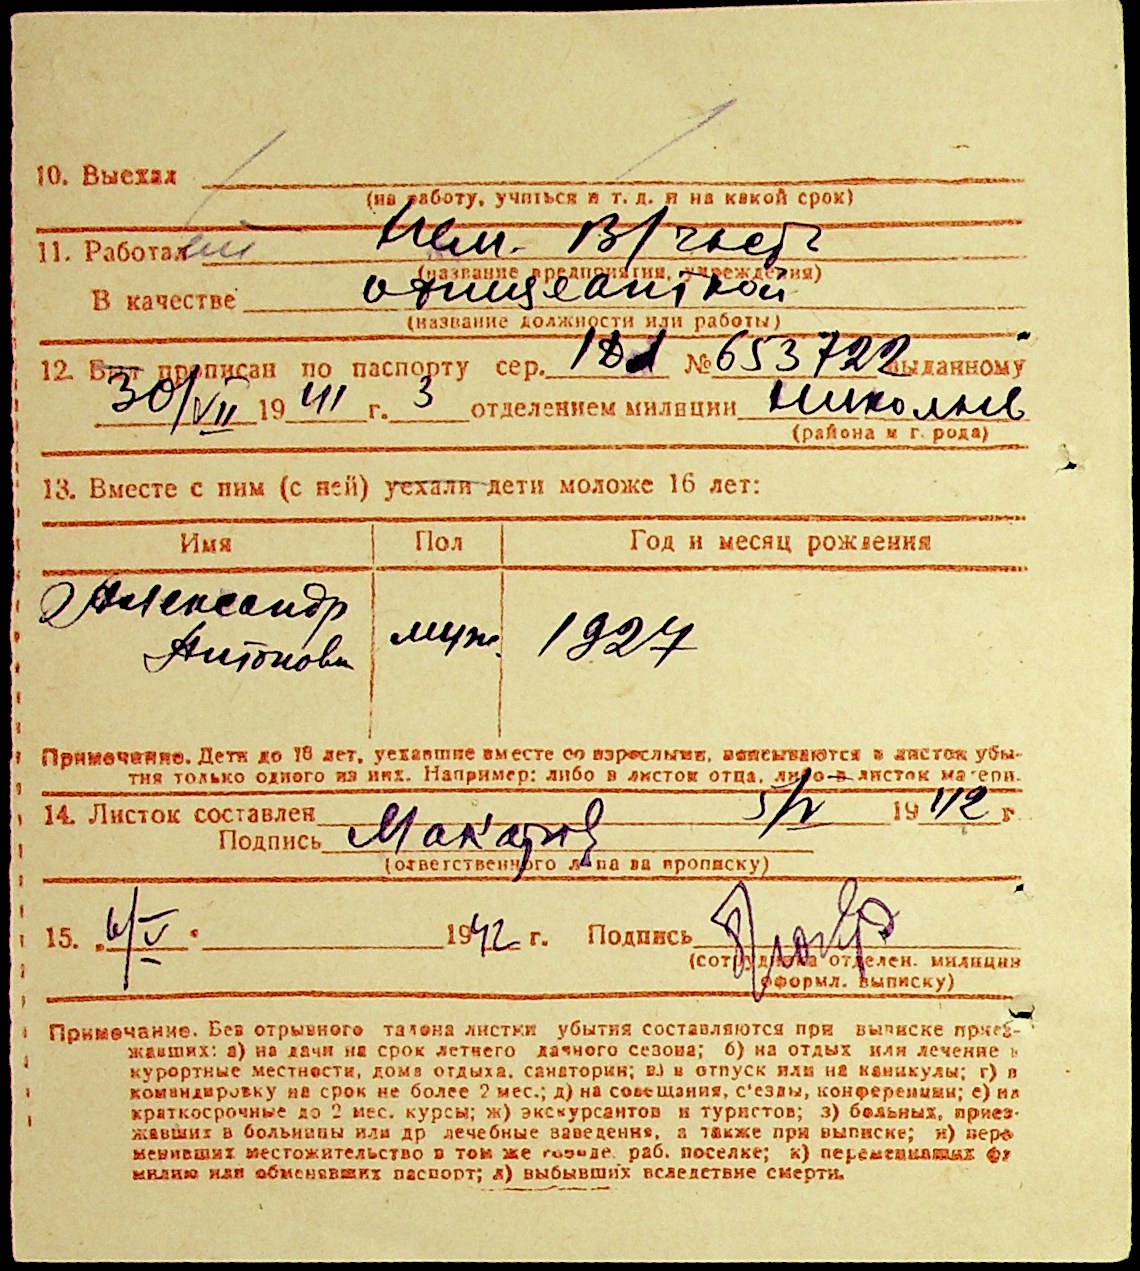 10. Выехал
(на работу, учиться и т. д. и на какой срок)
11. Работал Нем. В/часть
(название предприятия, учреждения)
В качестве официанткой
(название должности или работы)
12. Был прописан по паспорту сер. № 653722 выданному
30/VII 1941 г. 3 отделением милиции Николаев
(района и г. рода)
13. Вместе с ним (с ней) уехали дети моложе 16 лет:
Имя Пол Год и месяц рождения
Александр
Антонович муж. 1927
Примечание. Дети до 16 лет, уехавшие вместе со взрослыми, вписываются в листок убы-
тия только одного из них. Например: либо в листок отца, либо в листок матери.
14. Листок составлен 5/V 1942 г
Подпись Макаров
(ответственного лица за прописку)
15. 6/V 1942 г. Подпись
(сотрудника отделен. милиции
оформл. выписку)
Примечание. Без отрывного талона листки убытия составляются при выписке приез-
жавших: а) на дачи на срок летнего дачного сезона; б) на отдых или лечение в
курортные местности, дома отдыха, санатории; в) в отпуск или на каникулы; г) в
командировку на срок не более 2 мес.; д) на совещания, с'езды, конференции; е) на
краткосрочные до 2 мес. курсы; ж) экскурсантов и туристов; з) больных, приез-
жавших в больницы или др лечебные заведения, а также при выписке; и) пере
менивших местожительство в том же городе, раб. поселке; к) переменивших фа
милию или обменявших паспорт; л) выбывших вследствие смерти.